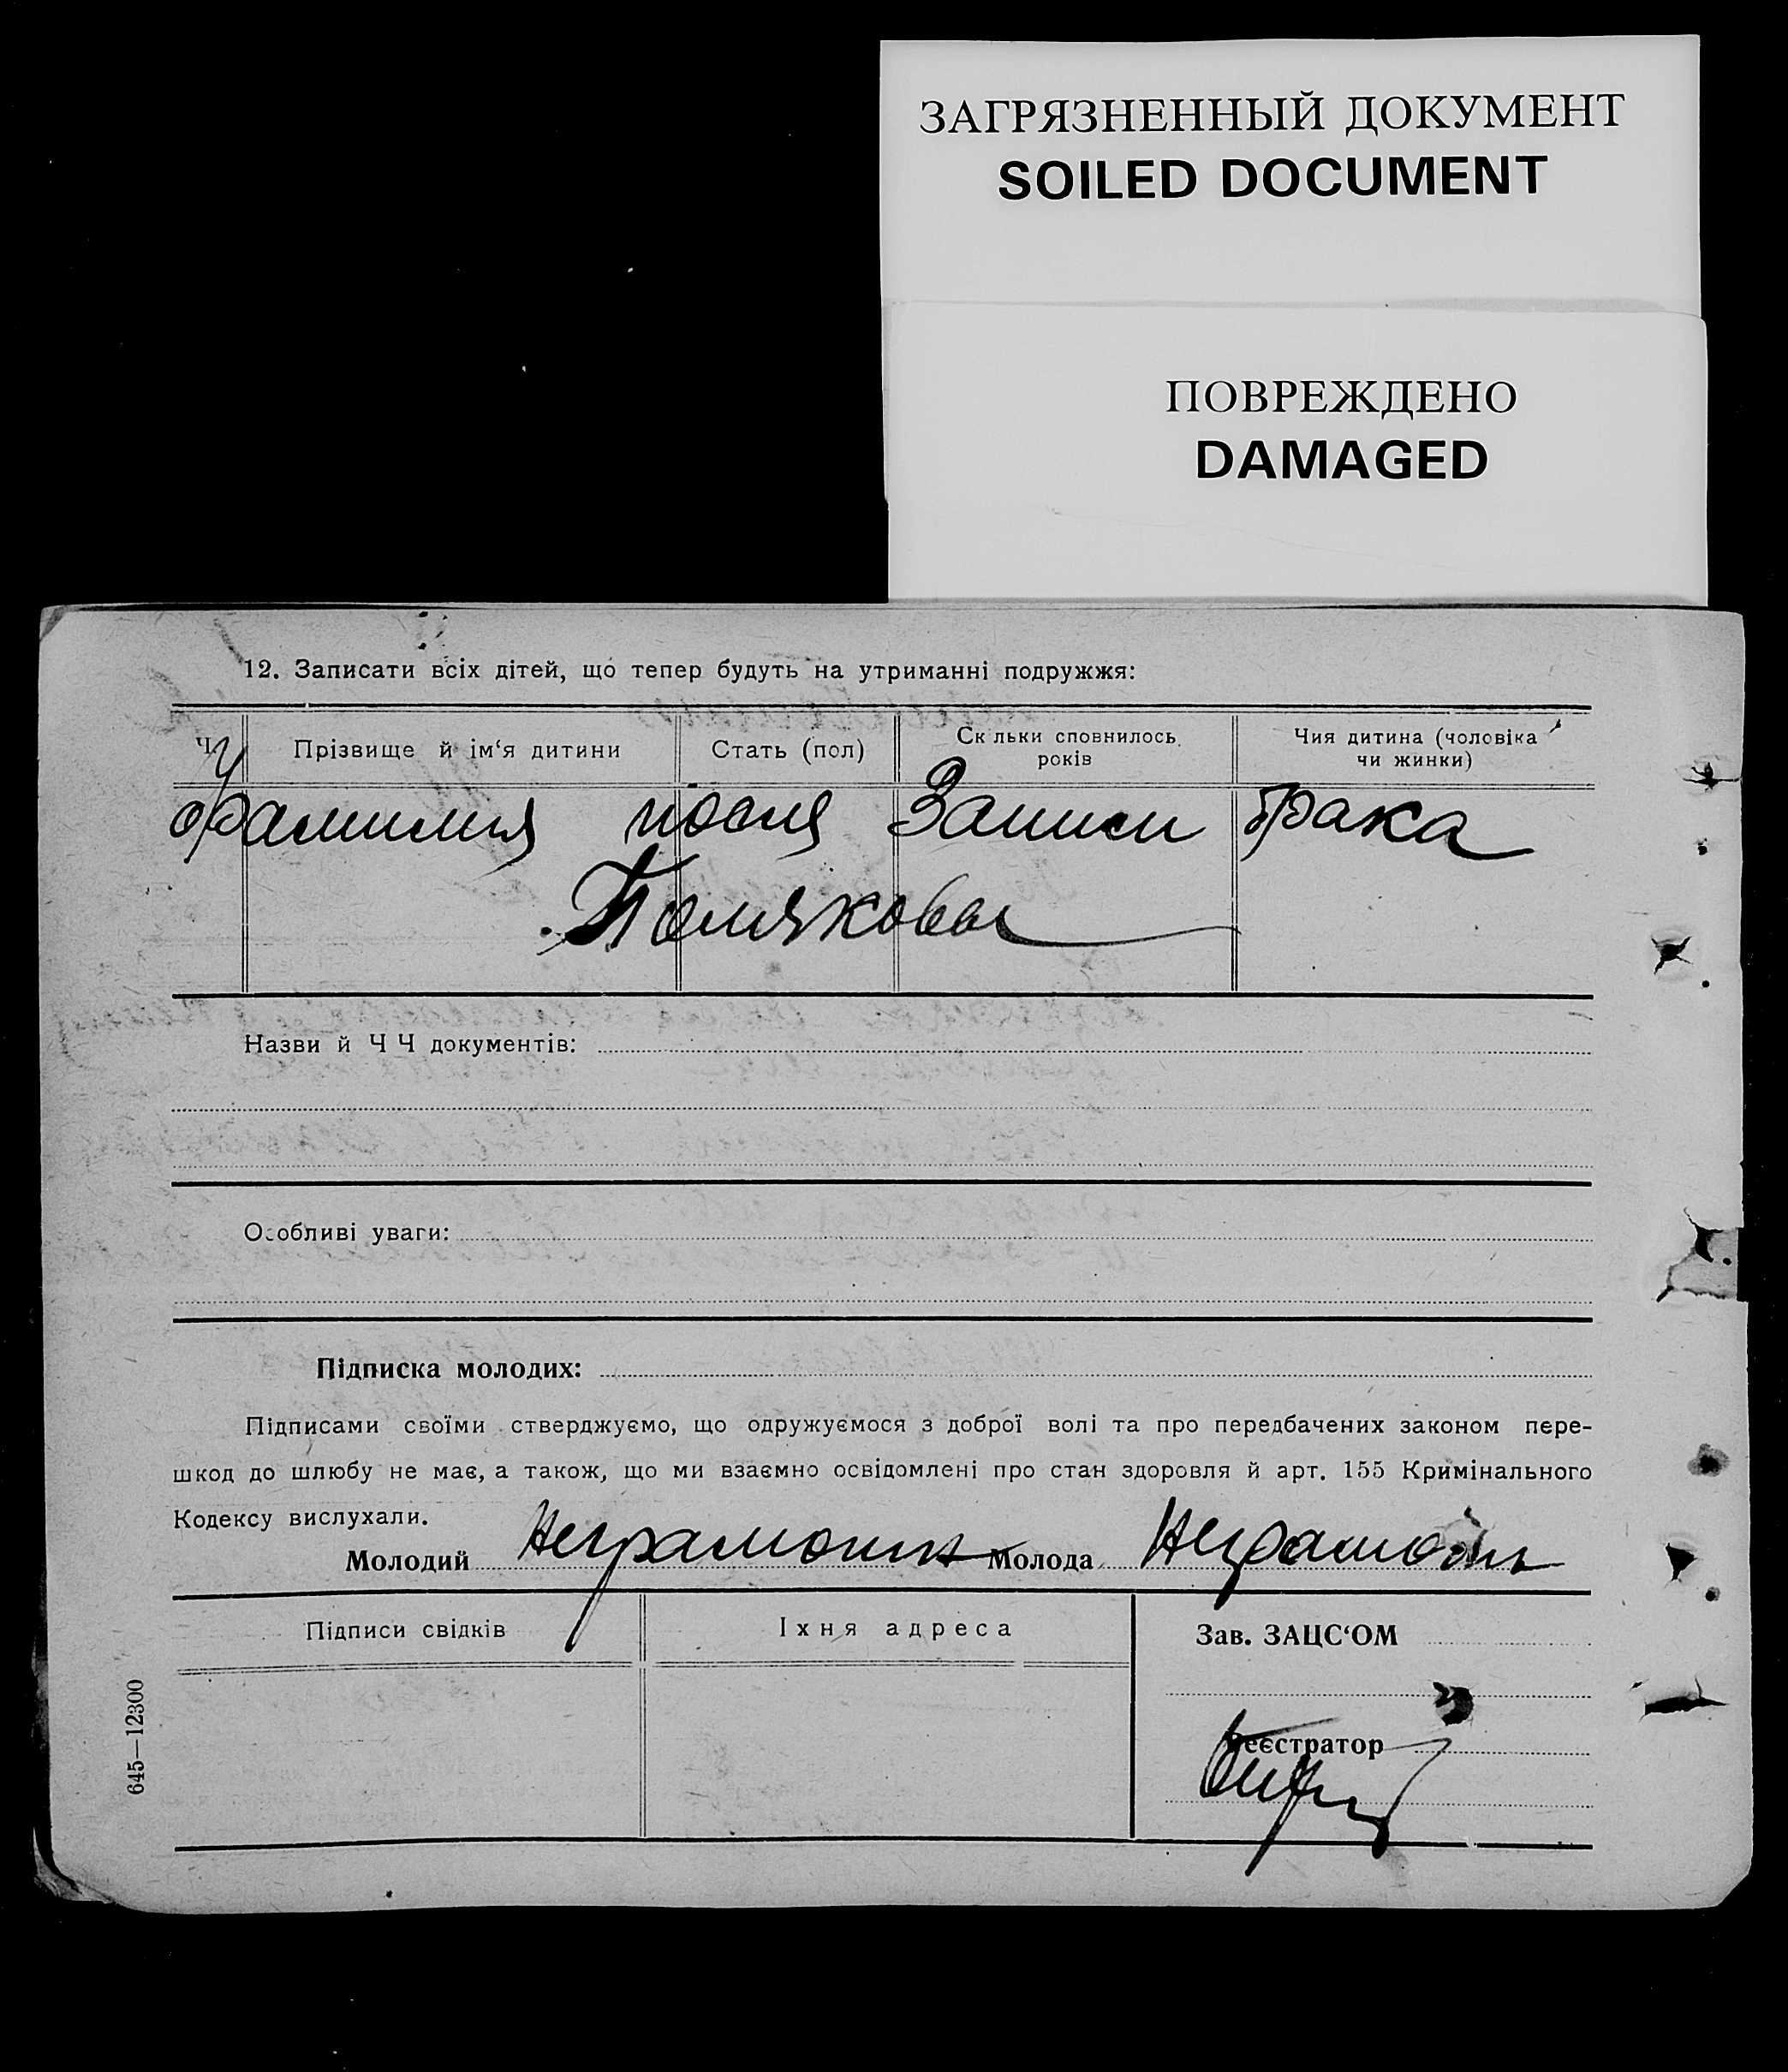 ЗАГРЯЗНЕННЫЙ ДОКУМЕНТ
SOILED DOCUMENT
ПОВРЕЖДЕНО
DAMAGED
12. Записати всіх дітей, що тепер будуть на утриманні подружжя:
Ч. Прізвище й ім‘я дитини Стать (пол) Скільки сповнилось років Чия дитина (чоловіка чи жинки)
фамилия после Записи брака
Поляковы
Назви й Ч Ч документів:
Особливі уваги:
Підписка молодих:
Підписами своїми стверджуємо, що одружуємося з доброї волі та про передбачених законом пере-
шкод до шлюбу не має, а також, що ми взаємно освідомлені про стан здоровля й арт. 155 Кримінального
Кодексу вислухали.
Молодий Неграмотн Молода Неграмотн
Підписи свідків Їхня адреса Зав. ЗАЦС‘ОМ
Реєстратор
645—12300